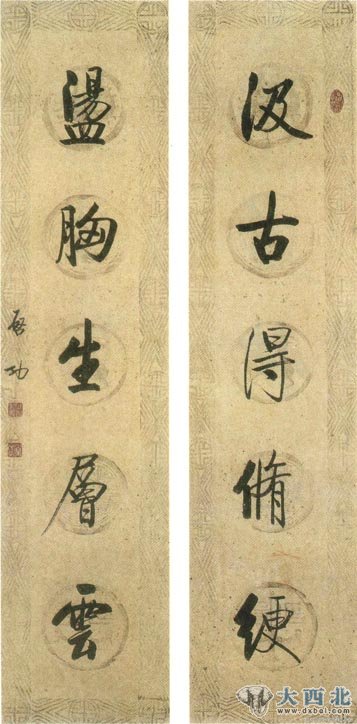 汲古得脩綆
盪胸生層雲
啓功
大西北
www.dxbei.com